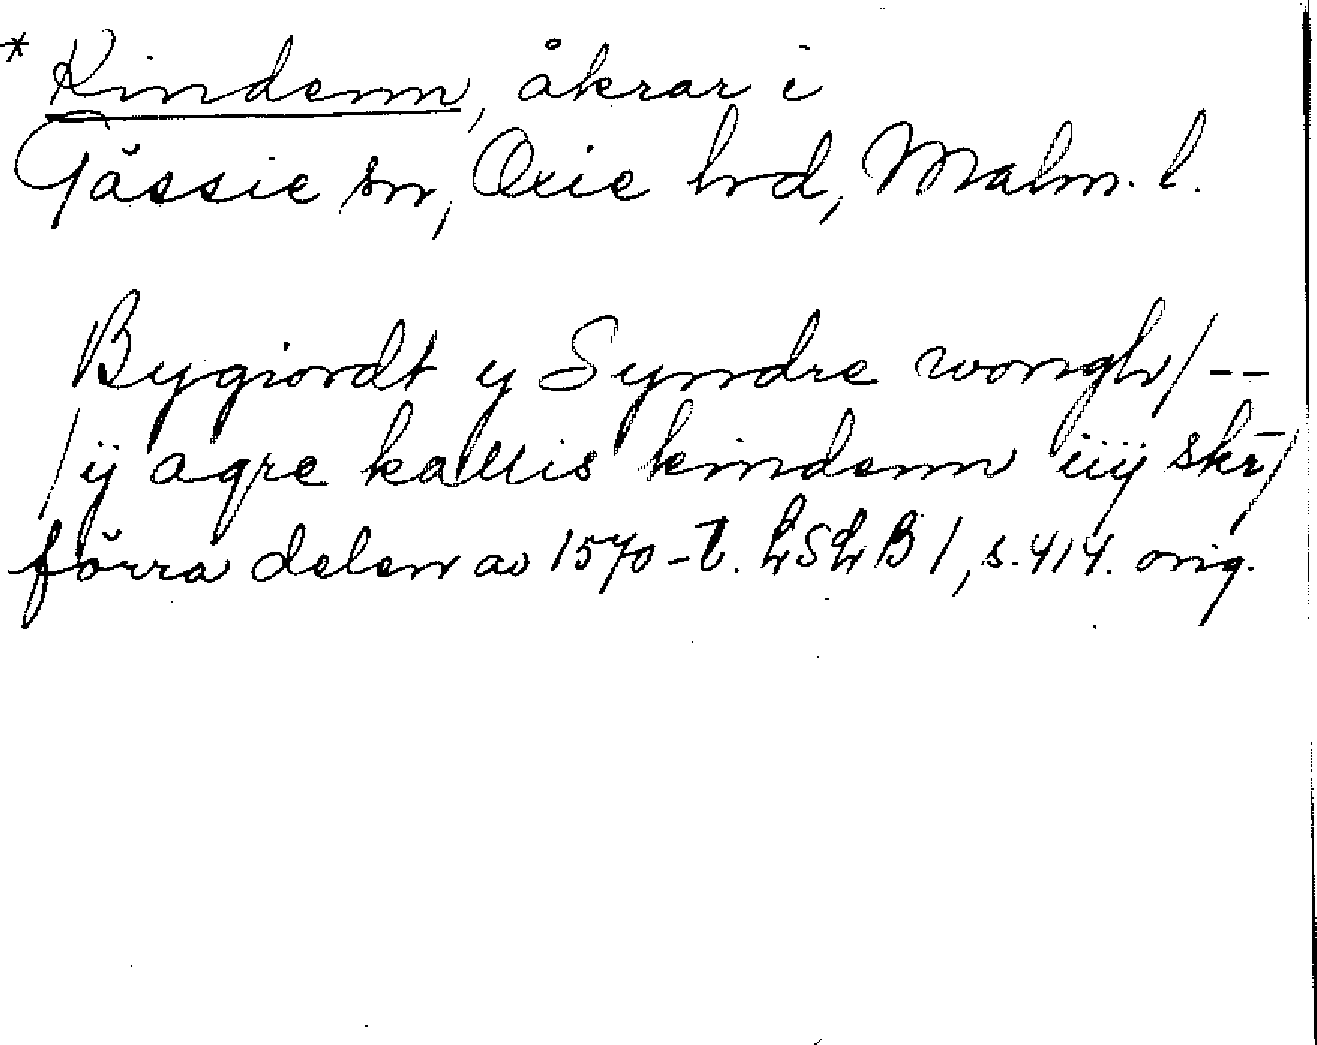 * Kindenn, åkrar i
Gässie sn, Oxie hrd, Malm. l.
Bygiordt y Syndre wongh/--
/ij agre kalliis kindenn iiij skr̄/
förra delen av 1570-t. LSLB 1, s. 414. orig.